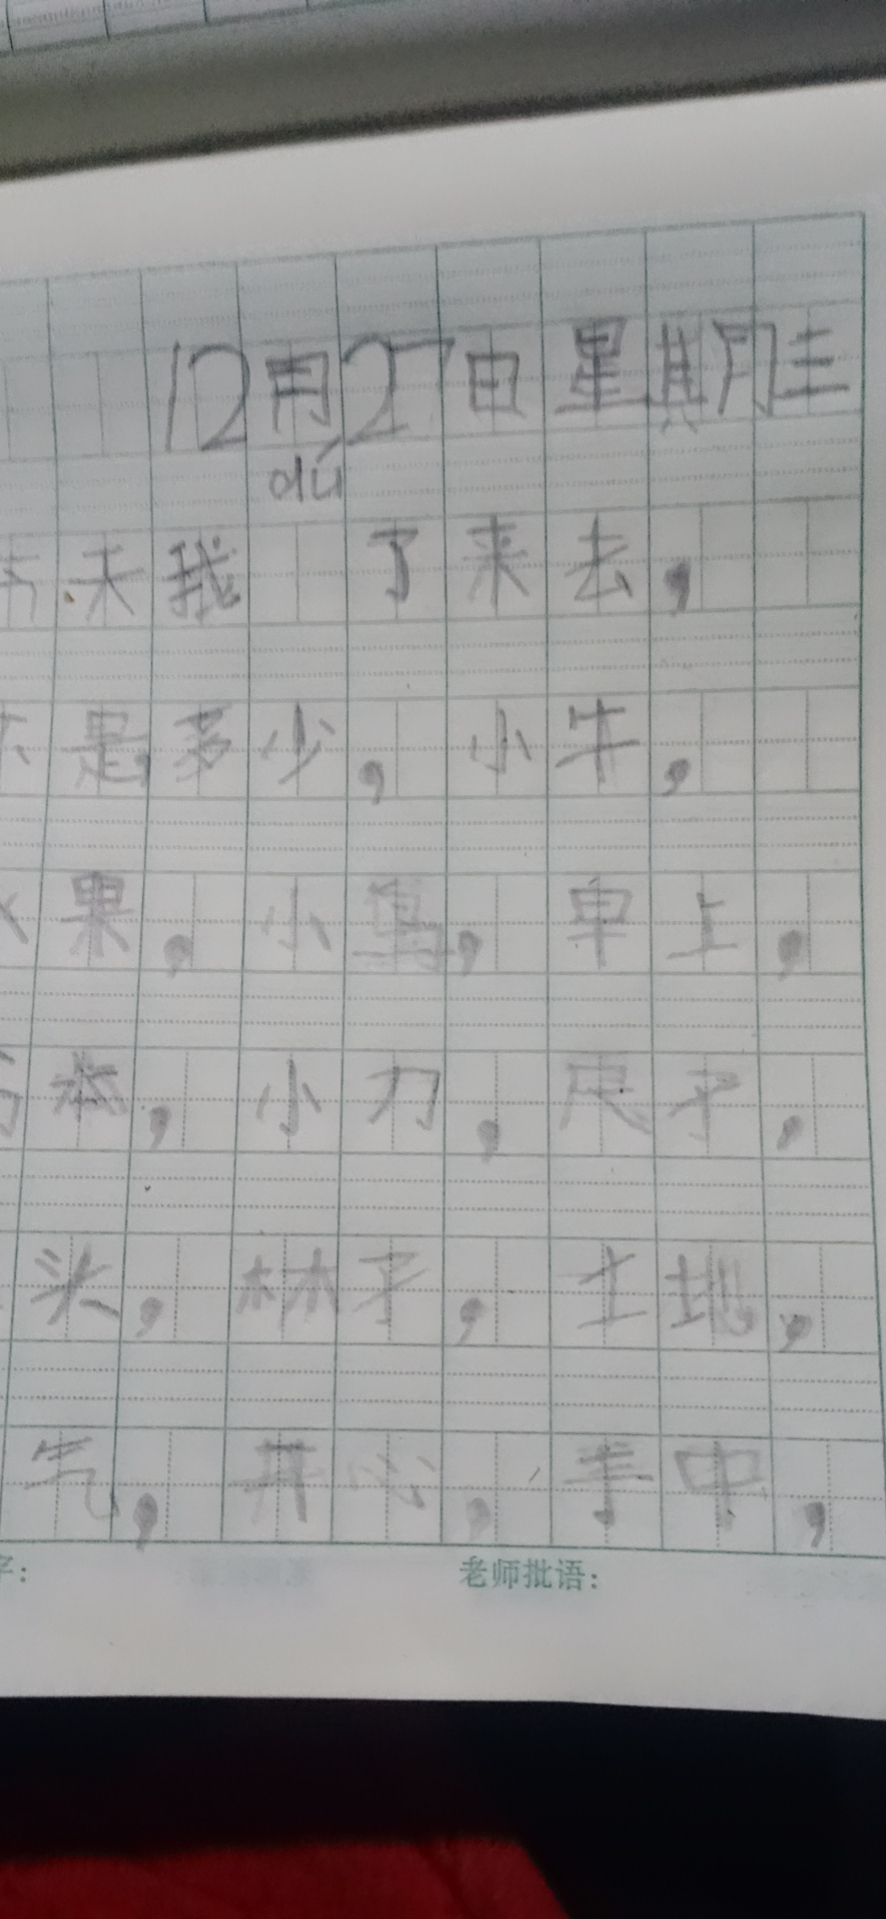 12月27日星期三
dú
天我 了来去，
是多少，小牛，
果，小鸟，早上，
本，小刀，尺子，
头，林子，土地，
气，开心，手中，
老师批语：